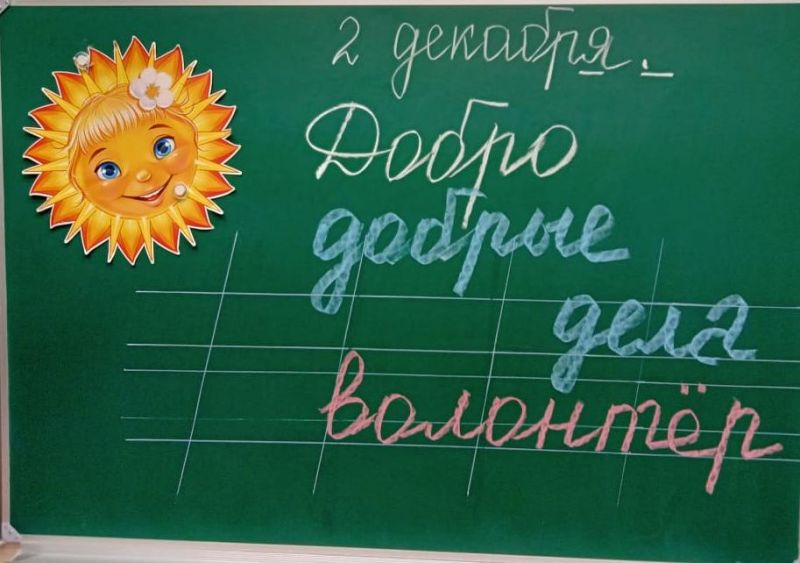 2 декабря.
Добро
добрые
дела
волонтёр